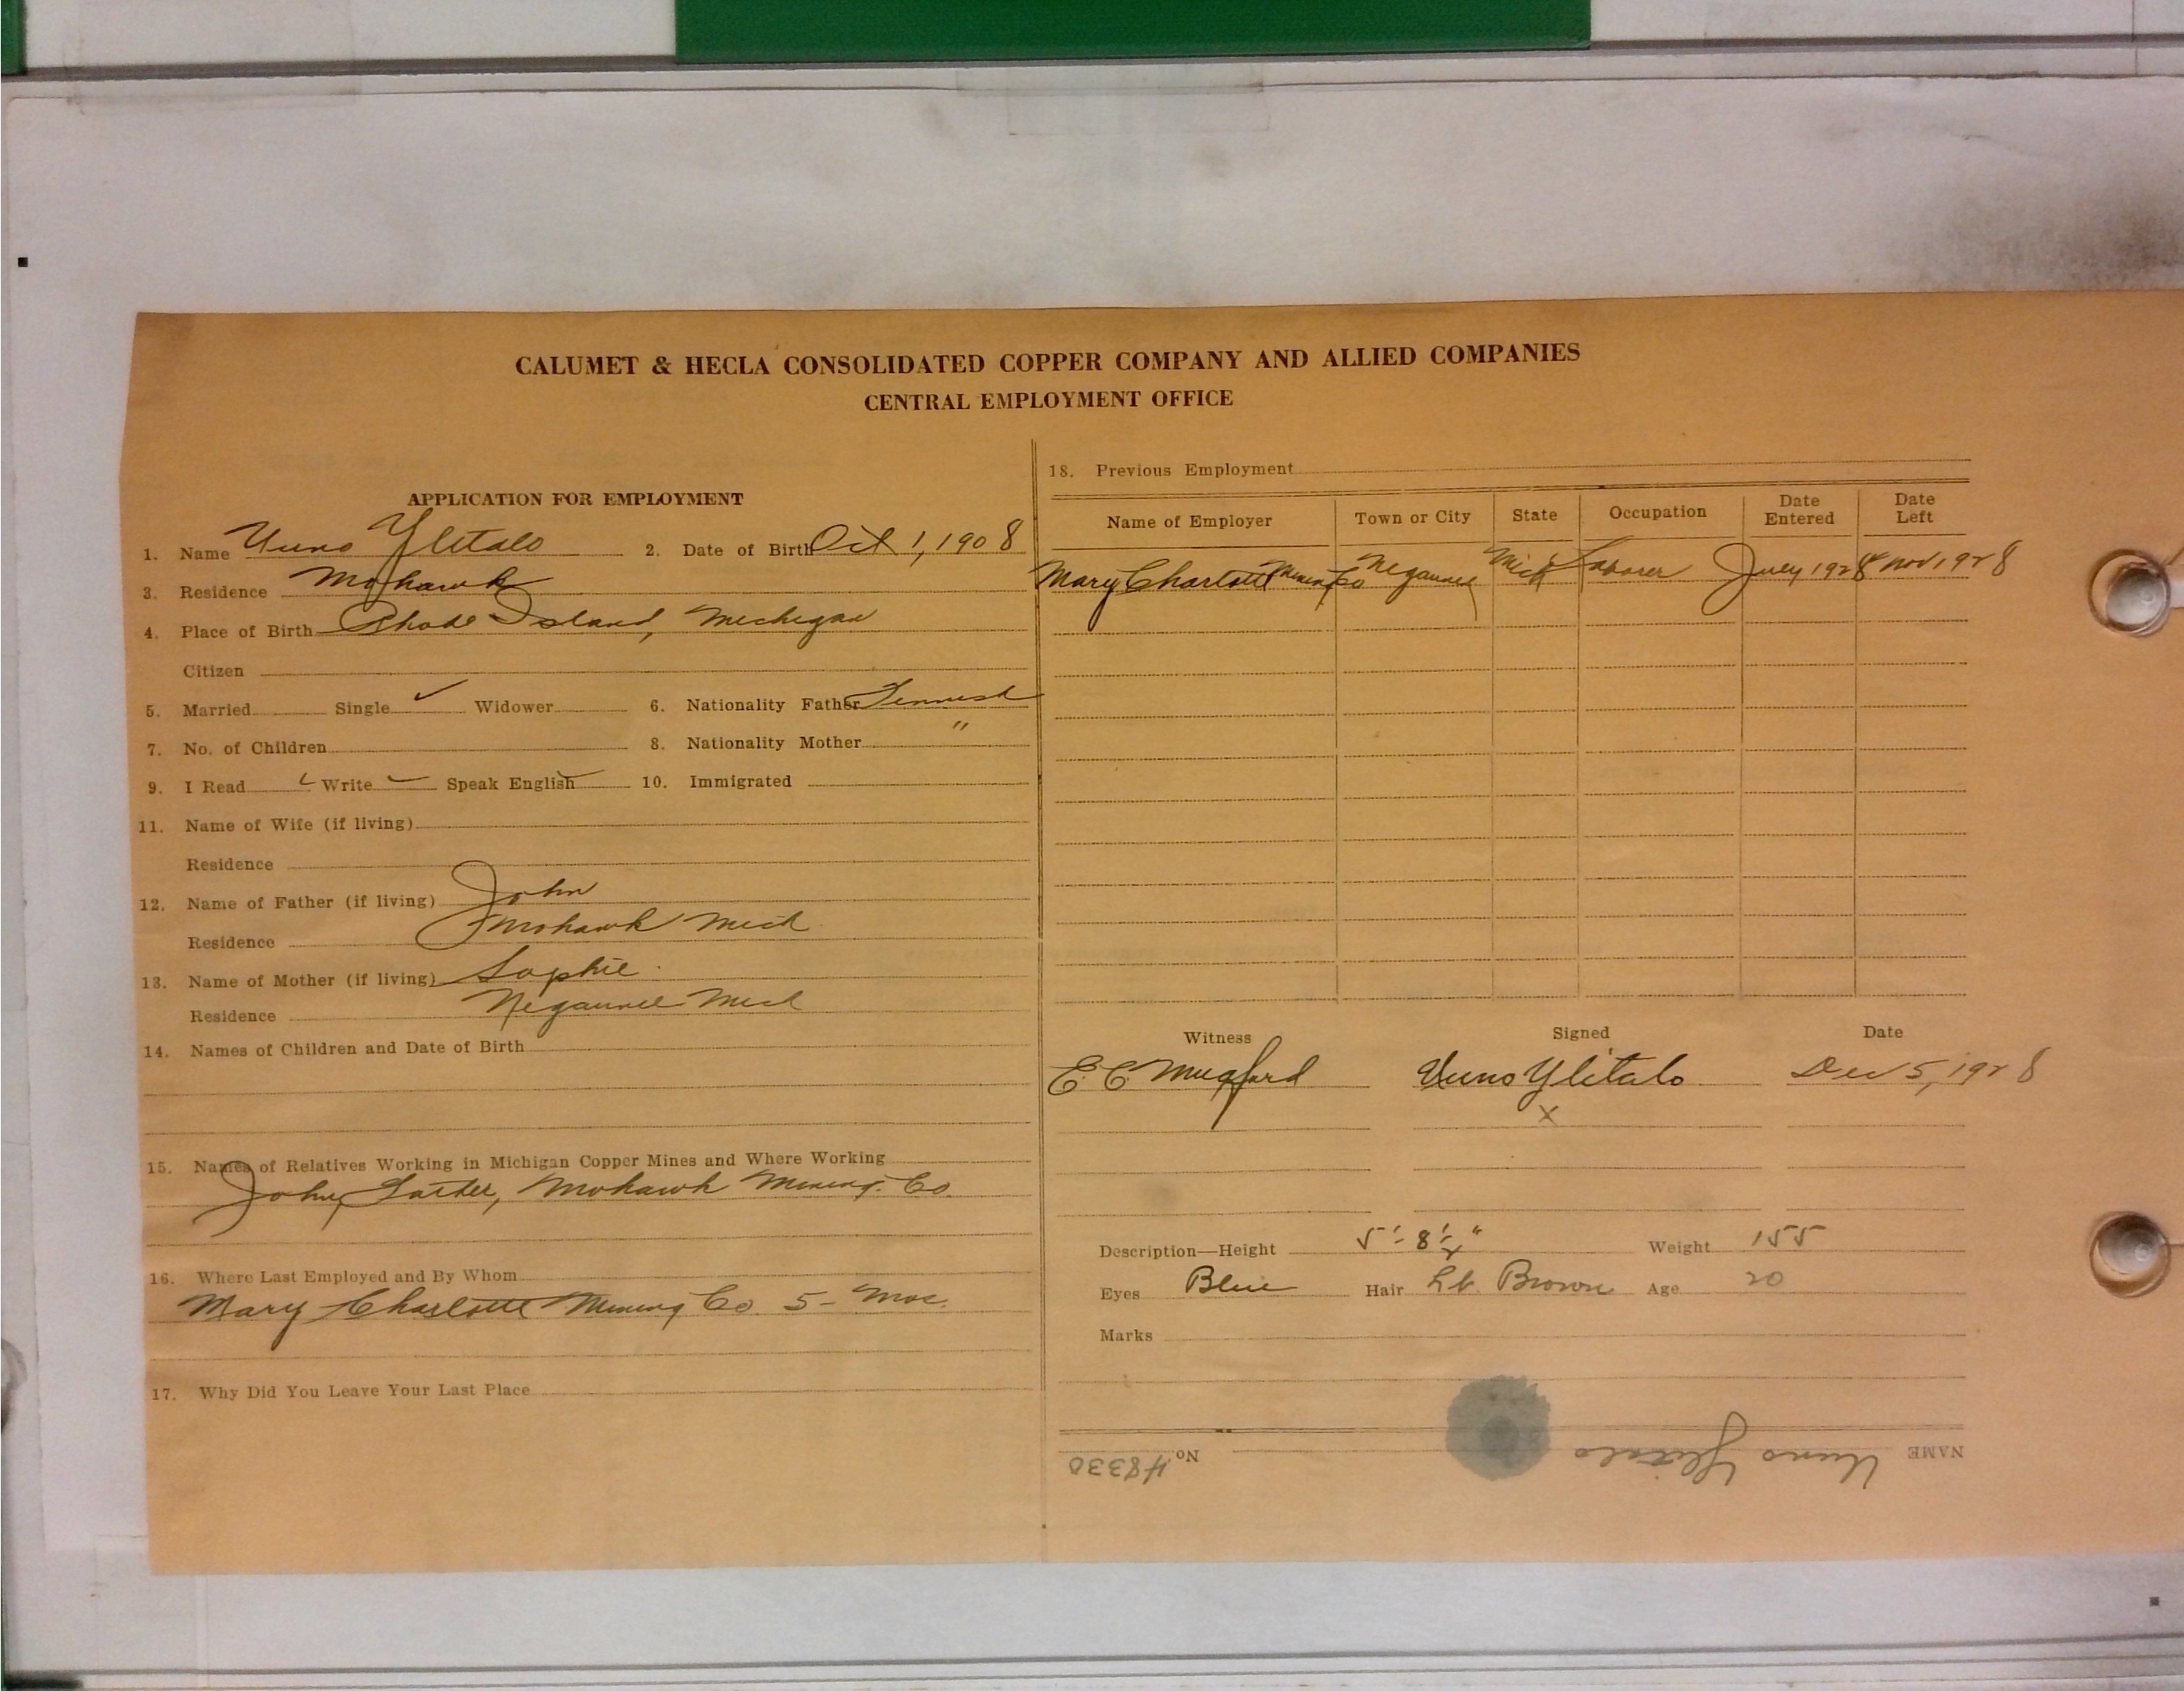 CALUMET & HECLA CONSOLIDATED COPPER COMPANY AND ALLIED COMPANIES
CENTRAL EMPLOYMENT OFFICE
APPLICATION FOR EMPLOYMENT
1. Name Uuno Ylitalo 2. Date of Birth Oct 1, 1908
3. Residence Mohawk
4. Place of Birth Rhode Island, Michigan
Citizen
5. Married Single ✓ Widower 6. Nationality Father Finnish
7. No. of Children 8. Nationality Mother "
9. I Read ✓ Write ✓ Speak English ✓ 10. Immigrated
11. Name of Wife (if living)
Residence
12. Name of Father (if living) John
Residence Mohawk Mich
13. Name of Mother (if living) Sophie
Residence Negaunee Mich
14. Names of Children and Date of Birth
15. Names of Relatives Working in Michigan Copper Mines and Where Working
John, Father, Mohawk Mining Co.
16. Where Last Employed and By Whom
Mary Charlotte Mining Co. 5- Mos.
17. Why Did You Leave Your Last Place
18. Previous Employment
Name of Employer Town or City State Occupation Date Entered Date Left
Mary Charlotte Mining Co Negaunee Mich Laborer July 1928 Nov, 1928
Witness Signed Date
E. C. Mugford Uuno Ylitalo Dec 5, 1928
x
Description—Height 5'-8 1/2" Weight 155
Eyes Blue Hair Lt. Brown Age 20
Marks
NAME Uuno Ylitalo No. 48330